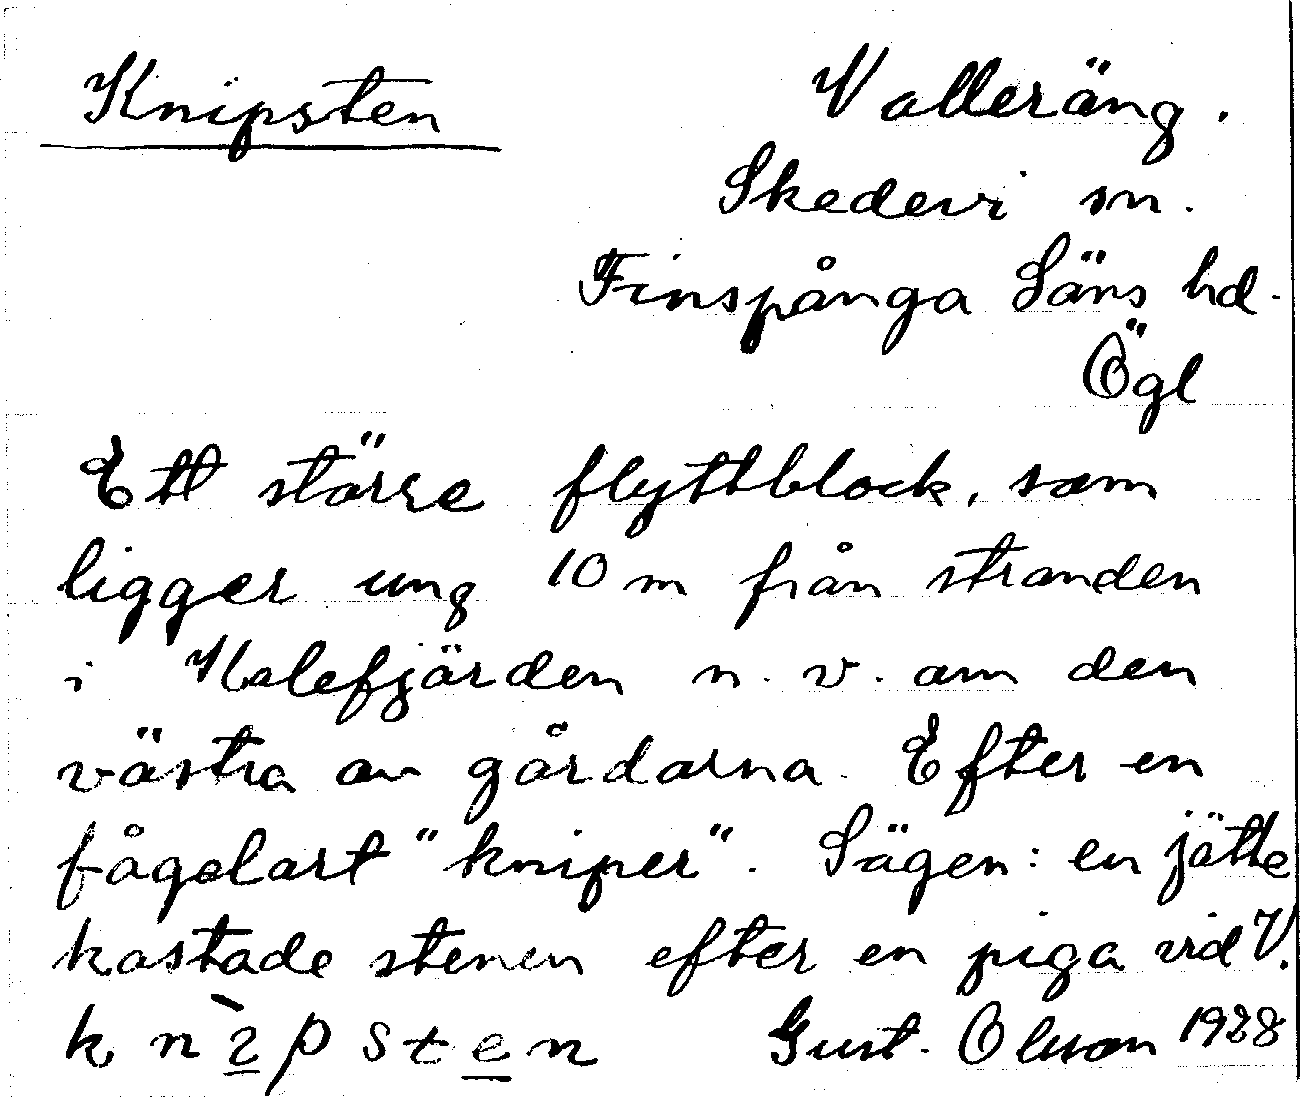 Knipsten
Valleräng.
Skedevi sn.
Finspånga Läns hd.
Ögl
Ett större flyttblock, som
ligger ung 10 m från stranden
i Kolefjärden n. v. om den
västra av gårdarna. Efter en
fågelart "kniper". Sägen: en jätte
kastade stenen efter en piga vid V.
knìpsten Gust. Olsson 1928